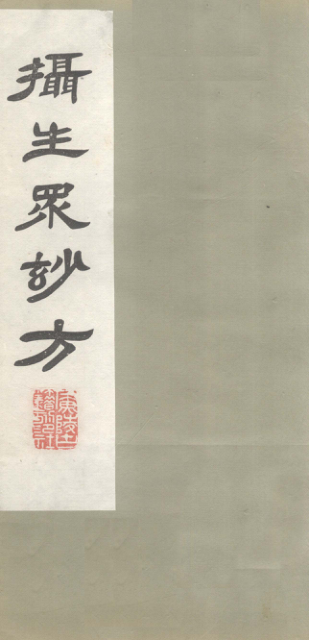 攝生眾妙方